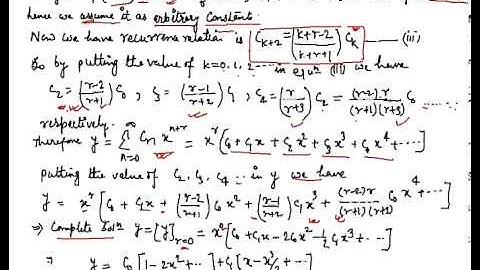 hence we assume it as arbitrary constant.
Now we have recurrence relation is C_{k+2} = (k+r-2 / k+r+1) C_k — (iii)
So by putting the value of k=0,1,2 ---- in eqⁿ (III) we have
C_2 = (r-2 / r+1) C_0 , C_3 = (r-1 / r+2) C_1 , C_4 = (r / r+3) C_2 = (r-2)r / (r+1)(r+3) C_0 ......
respectively.
Therefore y = Σ_{n=0}^{∞} C_n x^{n+r} = x^r [C_0 + C_1 x + C_2 x^2 + C_3 x^3 + C_4 x^4 + ---]
putting the value of C_2, C_3, C_4 --- in y we have
y = x^r [C_0 + C_1 x + (r-2 / r+1) C_0 x^2 + (r-1 / r+2) C_1 x^3 + (r-2)r / (r+1)(r+3) C_0 x^4 + ---]
⇒ Complete Solⁿ y = [y]_{r=0} = x^0 [C_0 + C_1 x - 2C_0 x^2 - 1/2 C_1 x^3 + ---]
⇒ y = C_0 [1 - 2x^2 + ---] + C_1 [x - x^3/2 + ---]